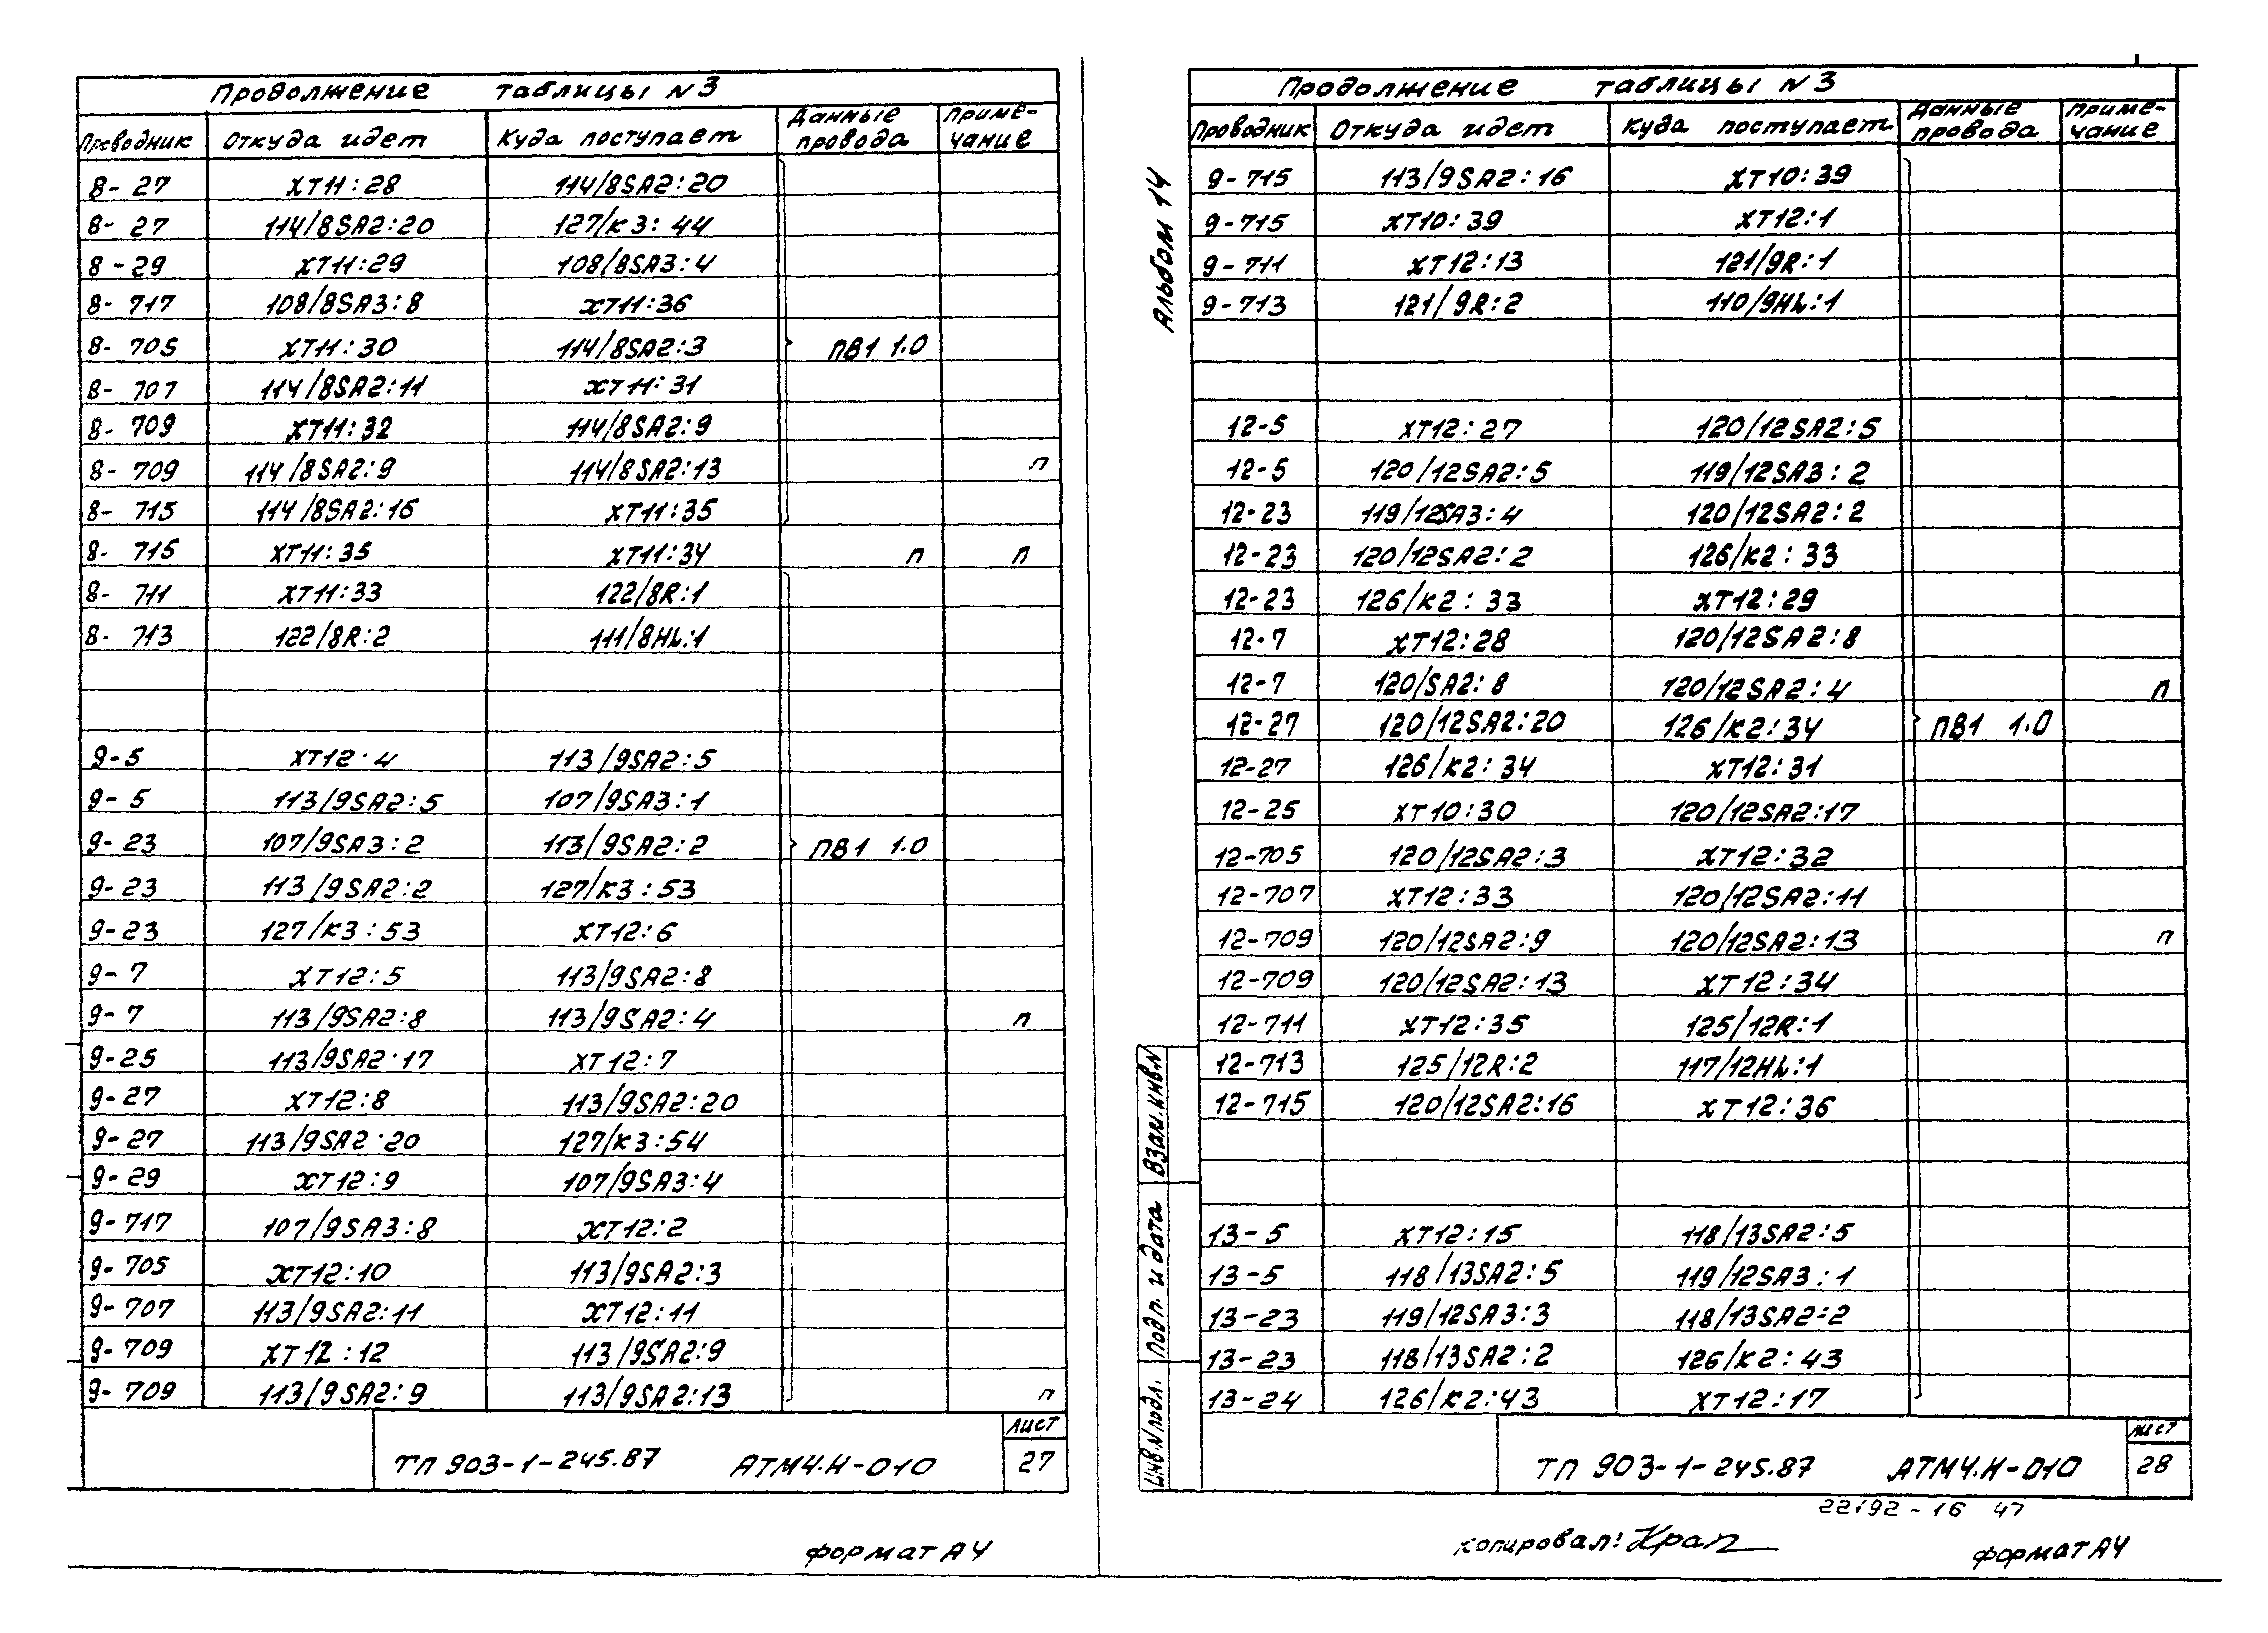 Продолжение таблицы N3
Проводник Откуда идет Куда поступает Данные провода Примечание
8-27 XT11:28 114/8SA2:20
8-27 114/8SA2:20 127/K3:44
8-29 XT11:29 108/8SA3:4
8-717 108/8SA3:8 XT11:36
8-705 XT11:30 114/8SA2:3 ПВ1 1.0
8-707 114/8SA2:11 XT11:31
8-709 XT11:32 114/8SA2:9
8-709 114/8SA2:9 114/8SA2:13 п
8-715 114/8SA2:16 XT11:35
8-715 XT11:35 XT11:34 п п
8-711 XT11:33 122/8R:1
8-713 122/8R:2 111/8HL:1
9-5 XT12·4 113/9SA2:5
9-5 113/9SA2:5 107/9SA3:1
9-23 107/9SA3:2 113/9SA2:2 ПВ1 1.0
9-23 113/9SA2:2 127/K3:53
9-23 127/K3:53 XT12:6
9-7 XT12:5 113/9SA2:8
9-7 113/9SA2:8 113/9SA2:4 п
9-25 113/9SA2·17 XT12:7
9-27 XT12:8 113/9SA2:20
9-27 113/9SA2·20 127/K3:54
9-29 XT12:9 107/9SA3:4
9-717 107/9SA3:8 XT12:2
9-705 XT12:10 113/9SA2:3
9-707 113/9SA2:11 XT12:11
9-709 XT12:12 113/9SA2:9
9-709 113/9SA2:9 113/9SA2:13 п
Лист
ТП 903-1-245.87 АТМ4.И-010 27
Формат А4
Альбом 14
Продолжение таблицы N3
Проводник Откуда идет Куда поступает Данные провода Примечание
9-715 113/9SA2:16 XT10:39
9-715 XT10:39 XT12:1
9-711 XT12:13 121/9R:1
9-713 121/9R:2 110/9HL:1
12-5 XT12:27 120/12SA2:5
12-5 120/12SA2:5 119/12SA3:2
12-23 119/12SA3:4 120/12SA2:2
12-23 120/12SA2:2 126/K2:33
12-23 126/K2:33 XT12:29
12-7 XT12:28 120/12SA2:8
12-7 120/SA2:8 120/12SA2:4 п
12-27 120/12SA2:20 126/K2:34 ПВ1 1.0
12-27 126/K2:34 XT12:31
12-25 XT10:30 120/12SA2:17
12-705 120/12SA2:3 XT12:32
12-707 XT12:33 120/12SA2:11
12-709 120/12SA2:9 120/12SA2:13 п
12-709 120/12SA2:13 XT12:34
12-711 XT12:35 125/12R:1
12-713 125/12R:2 117/12HL:1
12-715 120/12SA2:16 XT12:36
13-5 XT12:15 118/13SA2:5
13-5 118/13SA2:5 119/12SA3:1
13-23 119/12SA3:3 118/13SA2:2
13-23 118/13SA2:2 126/K2:43
13-24 126/K2:43 XT12:17
Инв.N подл. Подп. и дата Взам.инв.N
Лист
ТП 903-1-245.87 АТМ4.И-010 28
22192-16 47
Копировал: Крап
Формат А4